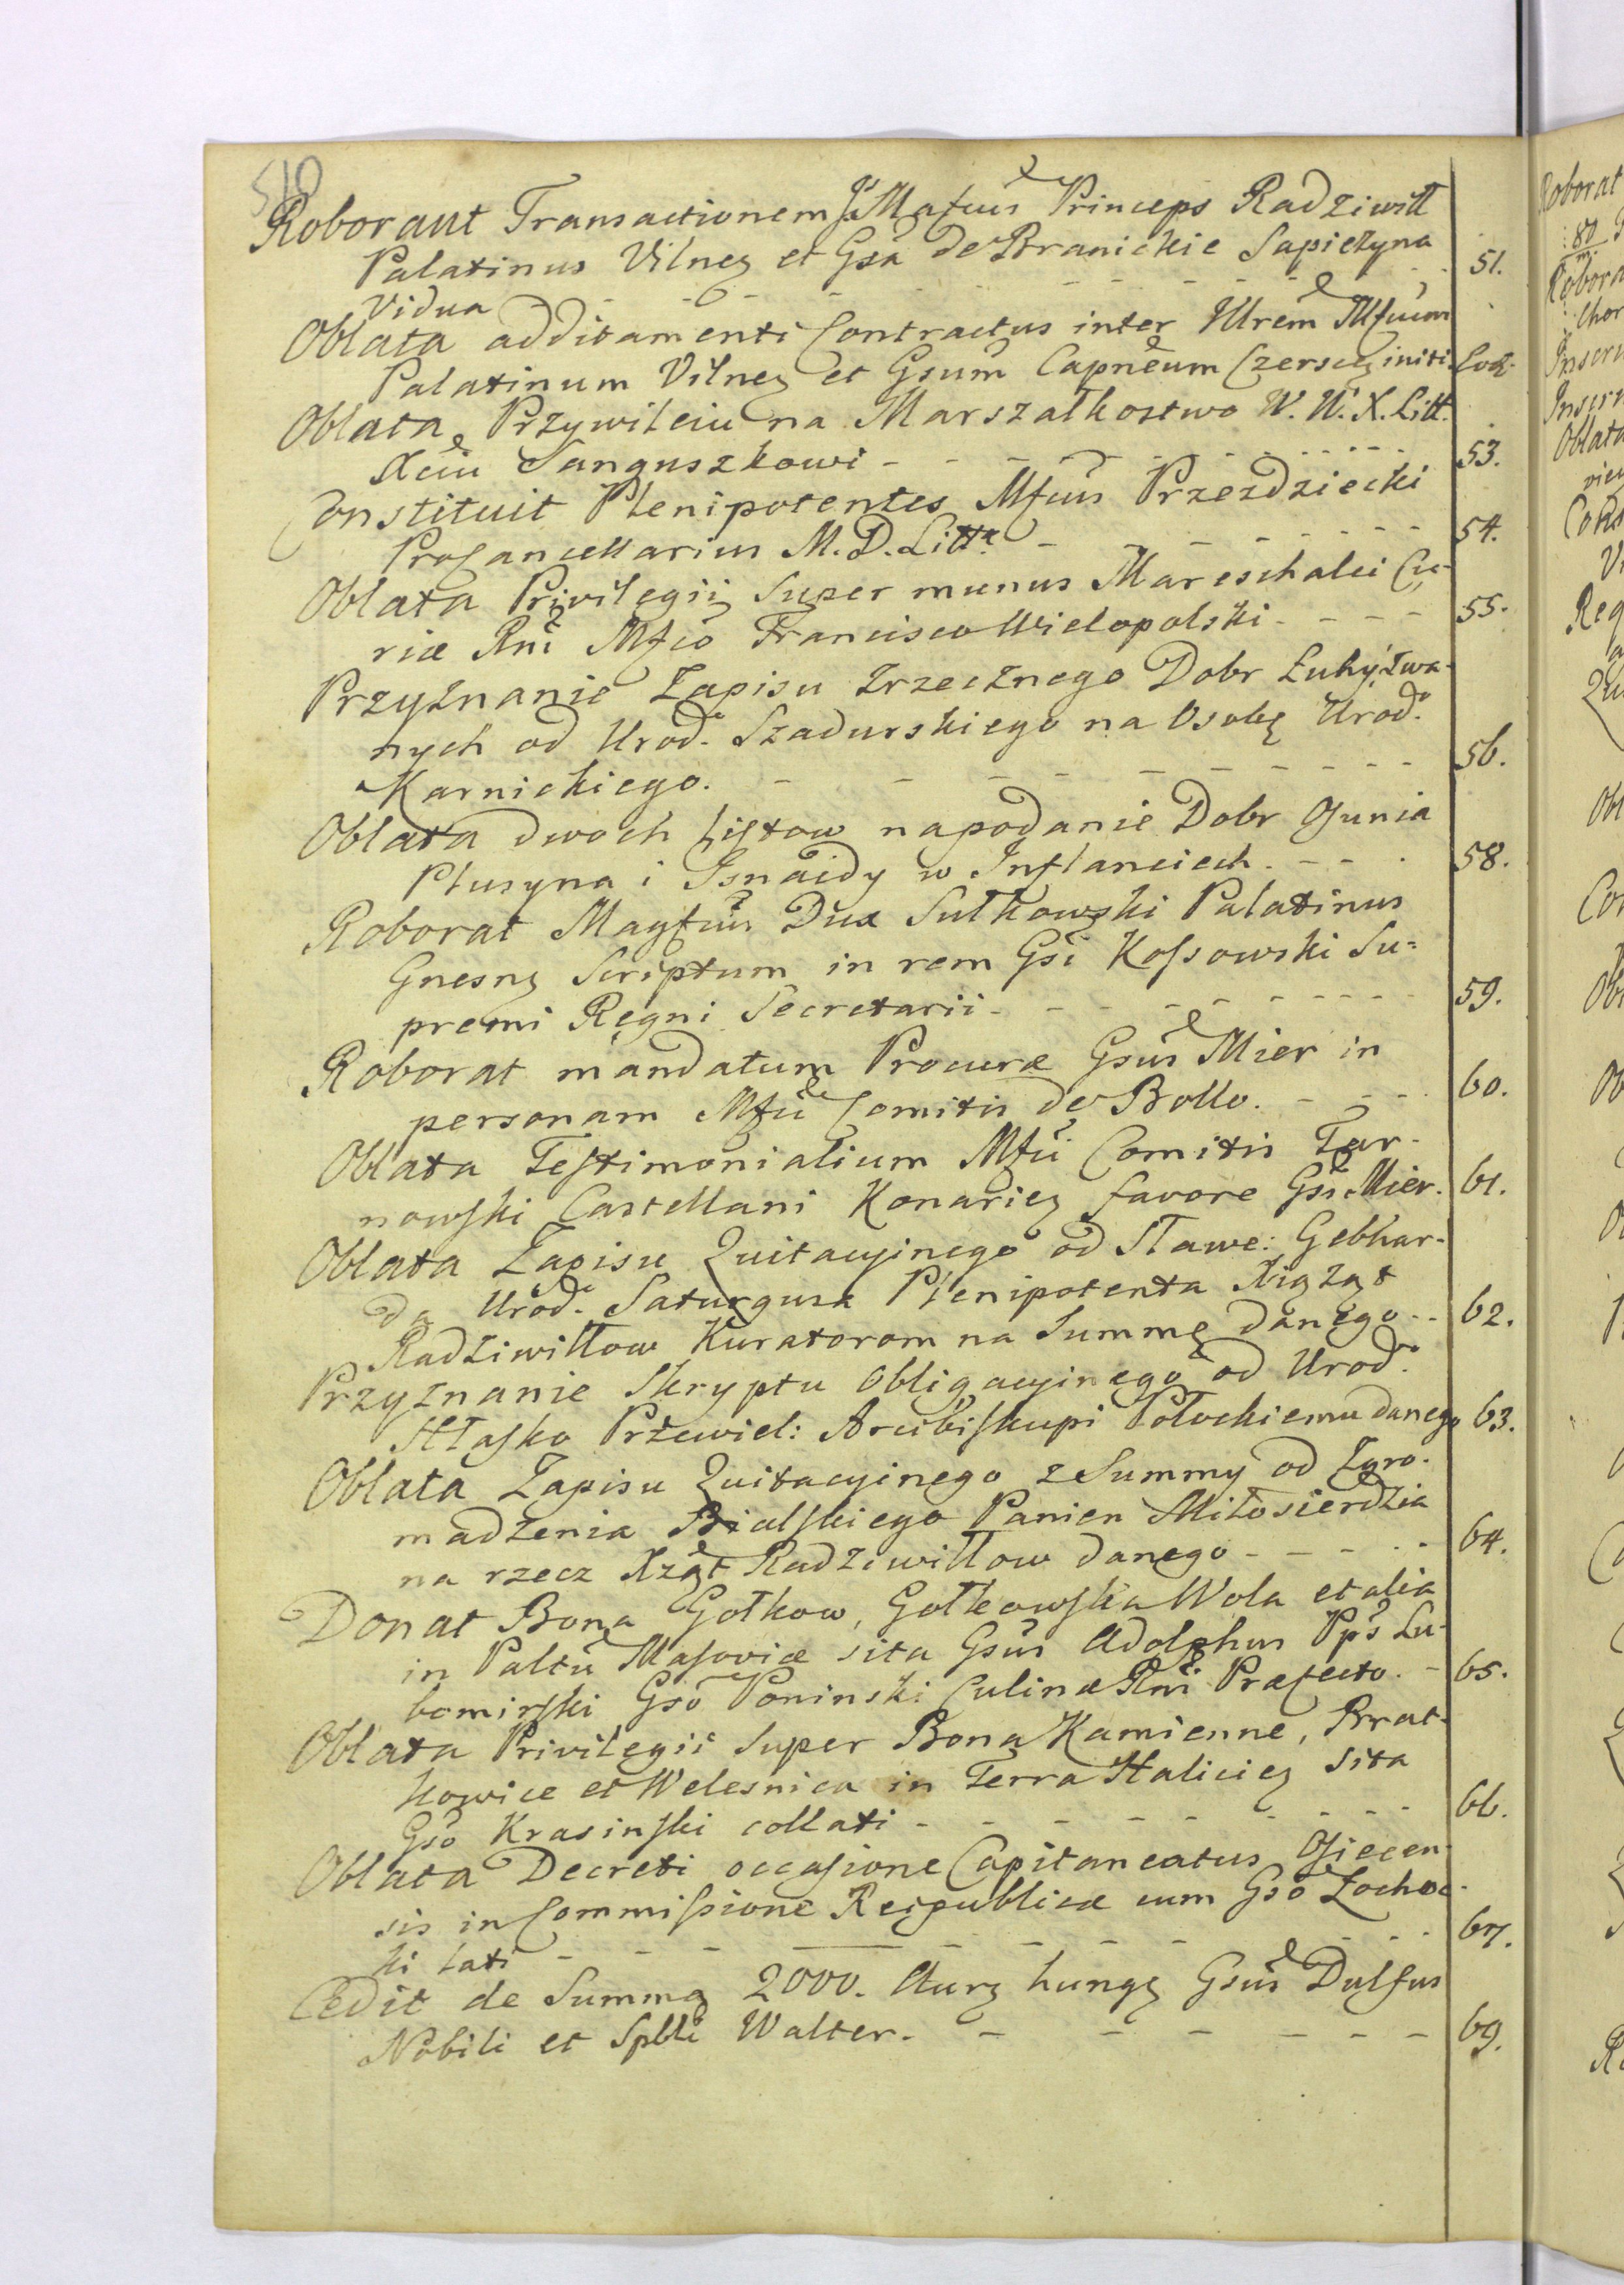 510
Roborant Transactionem Js Mgfcus Princeps Radziwiłł
Palatinus Vilnen et Gsa de Branickie Sapieżyna
Vidua - - - - - - - - 51.
Oblata additamenti Contractus inter Illrem Mfcum
Palatinum Vilnen et Gsum Capneum Czerscen initi. Eod.
Oblata Przywileiu na Marszałkostwo W. W. X. Litt.
Xciu Sanguszkowi - - - - - - 53.
Constituit Plenipotentes Mfcus Przezdziecki
ProCancellarius M. D. Litt. - - - - - 54.
Oblata Privilegii Super munus Mareschalci Cu-
riæ Rni Mfco Francisco Wielopolski - - - - 55.
Przyznanie Zapisu Zrzecznego Dobr Łuky zwa-
nych od Urod. Szadurskiego na Osobę Urod.
Karnickiego. - - - - - - - - 56.
Oblata dwoch Listow na podanie Dobr Osunia
Plusyna i Isnaidy w Inflanciech. - - - 58.
Roborat Magfcus Dux Sułkowski Palatinus
Gnesn Scriptum in rem Gsi Kossowski Su=
premi Regni Secretarii - - - - - - - 59.
Roborat mandatum Procuræ Gsus Mier in
personam Mfci Comitis de Bollo. - - - - 60.
Oblata Testimonialium Mfci Comitis Tar-
nowski Castellani Konarien favore Gsi Mier. 61.
Oblata Zapisu Quitacyinego od Sławe: Gebhar-
da Urod. Saturgusa Plenipotenta Xiąząt
Radziwiłłow Kuratorom na Summę danego - - 62.
Przyznanie Skryptu Obligacyinego od Urod.
Hłasko Przewiel: Arcibiskupi Połockiemu danego 63.
Oblata Zapisu Quitacyinego z Summy od Zgro-
madzenia Bialskiego Panien Miłosierdzia
na rzecz Xżąt Radziwiłłow danego - - - - - 64.
Donat Bona Gołkow, Gołkowska Wola et alia
in Paltu Masoviæ sita Gsus Adolphus Pps Lu-
bomirski Gso Poninski Culinæ Rni Præfecto. - 65.
Oblata Privilegii Super Bona Kamienne, Brat-
kowice et Welesnica in Terra Halicien sita
Gso Krasinski collati - - - - - - - 66.
Oblata Decreti occasione Capitaneatus Osiecen-
sis in Commissione Reipublicæ cum Gso Zochoc-
ki lati - - - - - - - - 67.
Cedit de Summa 2000. Aur hung Gsus Dulfus
Nobili et Splli Walter. - - - - - - 69.